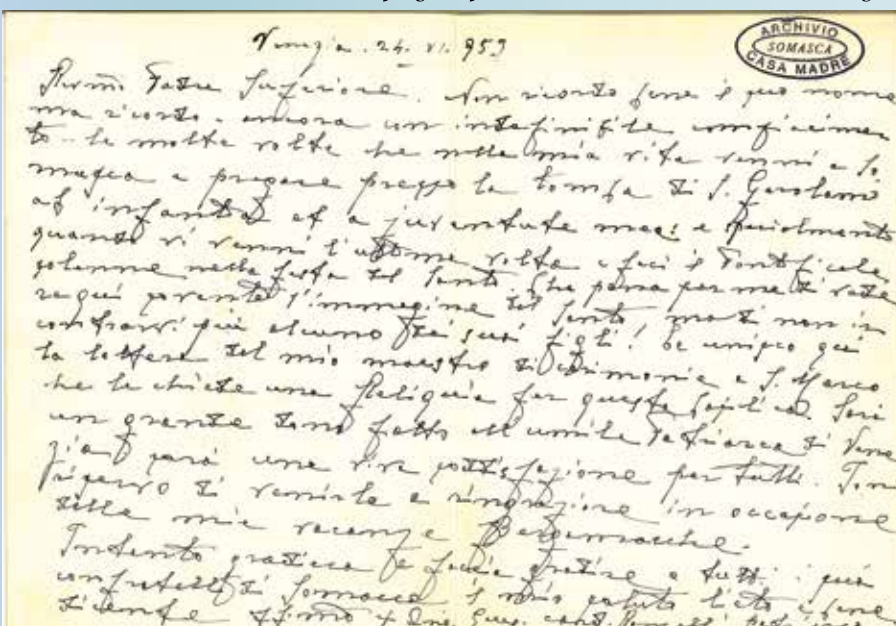 Venezia. 24. VI. 953
ARCHIVIO
SOMASCA
CASA MADRE
Rev.mo Padre Superiore. Non ricordo bene il suo nome
ma ricordo ancora con indefinibile compiacimen
to le molte volte che nella mia vita venni a So
masca a pregare presso la tomba di S. Gerolamo
ab infantia et a juventute mea: e specialmente
quando vi venni l'ultima volta e feci il Pontificale
solenne nella festa del Santo. Che pena per me di vede
re qui parente l'immagine del Santo ma di non in
contrarvi più alcuno dei suoi figli! Le unisco qui
la lettera del mio maestro di Cerimonie a S. Marco
che le chiede una Reliquia per questa basilica. Sarà
un grande dono fatto all'umile Patriarca di Vene
zia e sarà una viva soddisfazione per tutti. Io mi
riservo di venirla a ringraziare in occasione
delle mie vacanze Bergamasche.
Intanto gradisca e faccia gradire a tutti i suoi
confratelli di Somasca il mio saluto lieto e bene
dicente + Ang. Gius. card. Roncalli patriarca